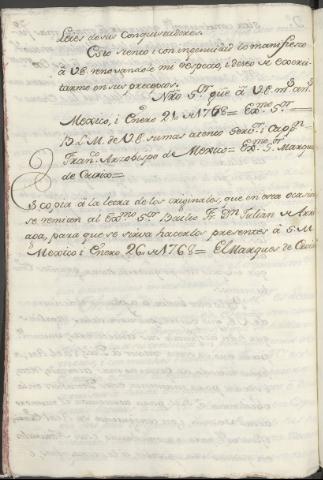 leies de sus Conquistadores.
Esto siento i con ingenuidad lo manifiesto
à VE. renovandole mi respeto, i deseo de exerci-
tarme en sus preceptos.
Nro. Sor. gue. à VE. ms. as.
Mexico, i Eno. 21. de 1768= Exmo. Sor.=
B L M. de VE. su mas atento servor. i Capn.=
Franco. Arzobispo de Mexico= Exmo. Sr. Marques
de Croix=
Es copia à la letra de los originales, que en esta ocasion
se remiten al Exmo. Sor. Bailio Fr. Dn. Julian de Arria-
ga, para que se sirva hacerlos presentes à S. M.
Mexico i Enero 26. de 1768= El Marques de Croix